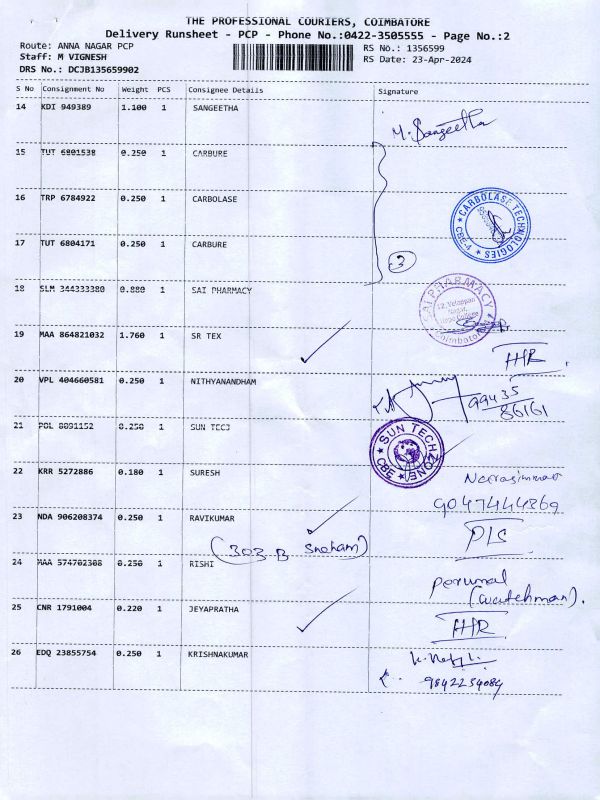 THE PROFESSIONAL COURIERS, COIMBATORE
Delivery Runsheet - PCP - Phone No.:0422-3505555 - Page No.:2
Route: ANNA NAGAR PCP
RS No.: 1356599
Staff: M VIGNESH
RS Date: 23-Apr-2024
DRS No.: DCJB135659902
S No Consignment No Weight PCS Consignee Details Signature
14 KDI 949389 1.100 1 SANGEETHA
M. Sangeetha
15 TUT 6801538 0.250 1 CARBURE
16 TRP 6784922 0.250 1 CARBOLASE
CARBOLASE TECHNOLOGIES
CBE-4
17 TUT 6804171 0.250 1 CARBURE
3
18 SLM 344333380 0.880 1 SAI PHARMACY
SAI PHARMACY
12, Velappan
Nagar,
Coimbatore
19 MAA 864821032 1.760 1 SR TEX
HR
20 VPL 404660581 0.250 1 NITHYANANDHAM
99435
86161
21 POL 8091152 0.250 1 SUN TECJ
SUN TECH ZONE
CBE
22 KRR 5272886 0.180 1 SURESH
9047444869
23 NDA 906208374 0.250 1 RAVIKUMAR
D/C
(303.B Sneham)
24 MAA 574702308 0.250 1 RISHI
Perumal
(watchman).
25 CNR 1791004 0.220 1 JEYAPRATHA
HR
26 EDQ 23855754 0.250 1 KRISHNAKUMAR
9842254084